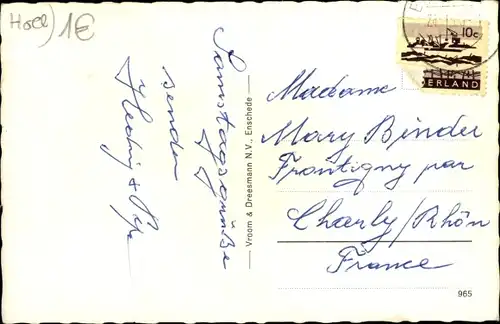 Holl) 1€
Samstagsgrüße
senden
Hedwig +
Vroom & Dreesmann N.V., Enschede
10c
DERLAND
Madame
Mary Binder
Frontigny par
Charly/Rhôn
France
965